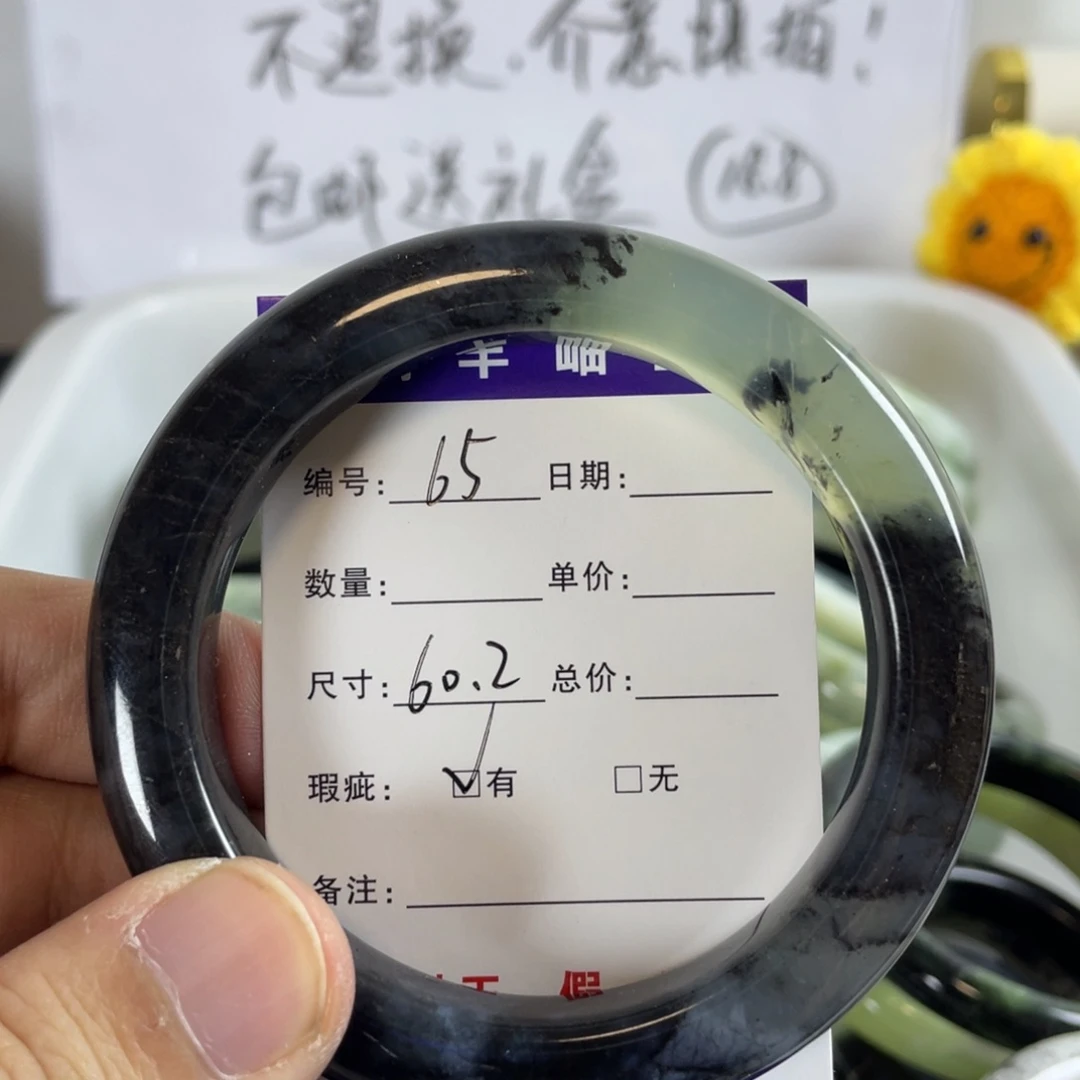 不退换.介意慎拍!
包邮送礼盒
编号: 65 日期:
数量: 单价:
尺寸: 60.2 总价:
瑕疵: ☑有 □无
备注:
假